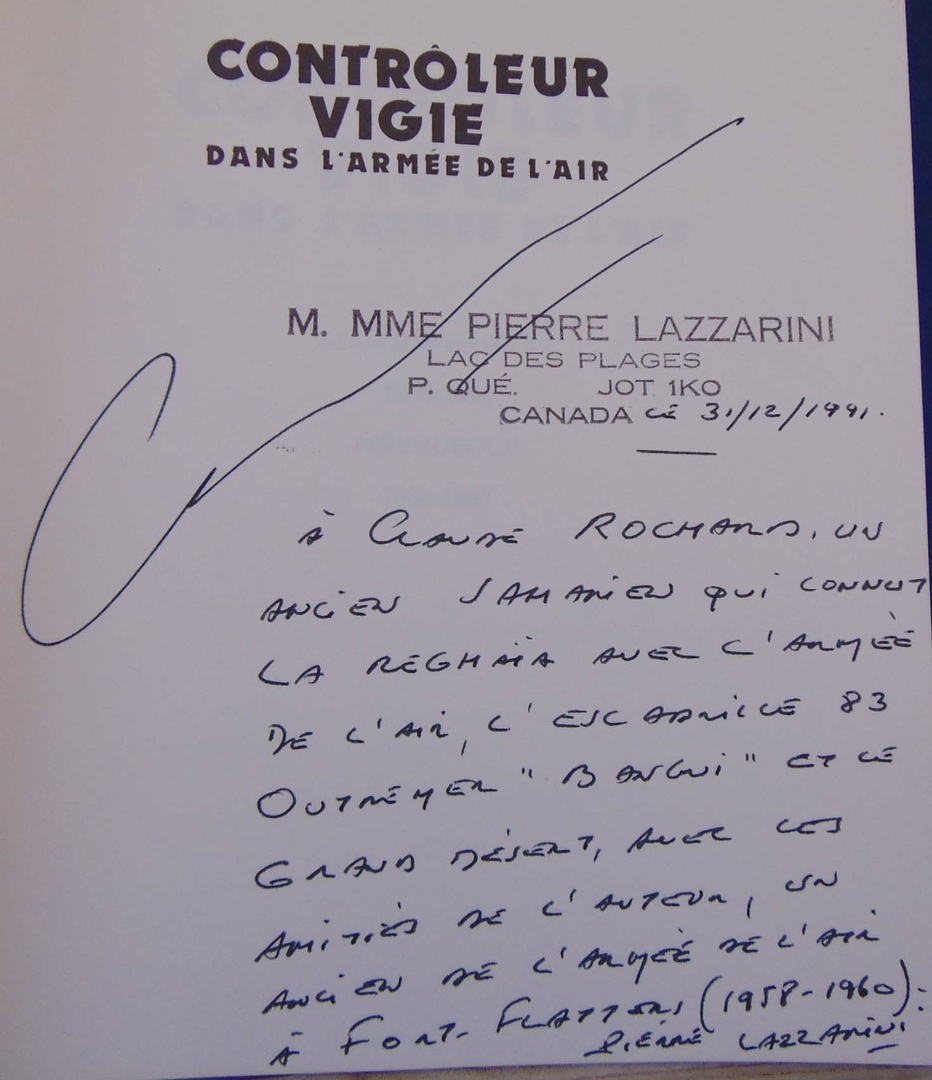 CONTRÔLEUR
VIGIE
DANS L'ARMÉE DE L'AIR
M. MME PIERRE LAZZARINI
LAC DES PLAGES
P. QUÉ. JOT 1KO
CANADA LE 31/12/1991.
À CLAUDE ROCHARD, UN
ANCIEN SAHARIEN QUI CONNUT
LA REGHAÏA AVEC L'ARMÉE
DE L'AIR, L'ESCADRILLE 83
OUTREMER "BANGUI" ET LE
GRAND DÉSERT, AVEC LES
AMITIÉS DE L'AUTEUR, UN
ANCIEN DE L'ARMÉE DE L'AIR
À FORT-FLATTERS (1958-1960).
PIERRE LAZZARINI